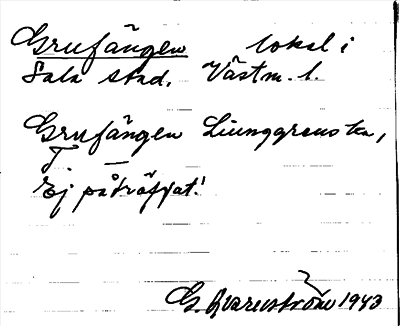 Grufängen lokal i
Sala stad. Västm. l.
Grufängen Liunggrenska,
T —
Ej påträffat!
G. Qvarnström 1943